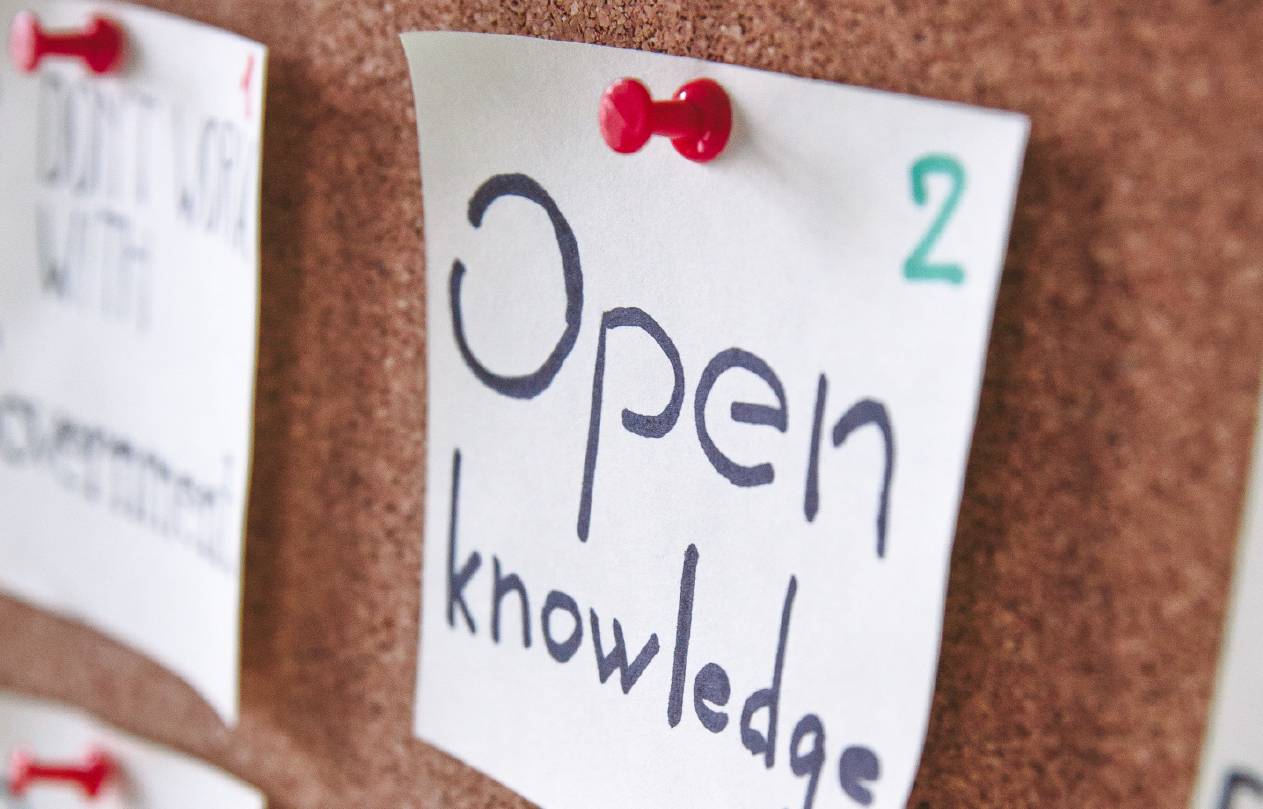 1
DON'T WORK
WITH
overnment
2
Open
knowledge